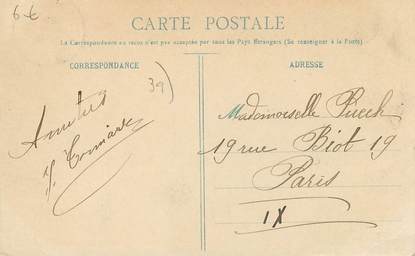 6 €
CARTE POSTALE
La Correspondance au recto n'est pas acceptée par tous les Pays Etrangers (Se renseigner à la Poste)
CORRESPONDANCE
ADRESSE
39
Amitiés
Mademoiselle
19 rue Biot 19
Paris
IX